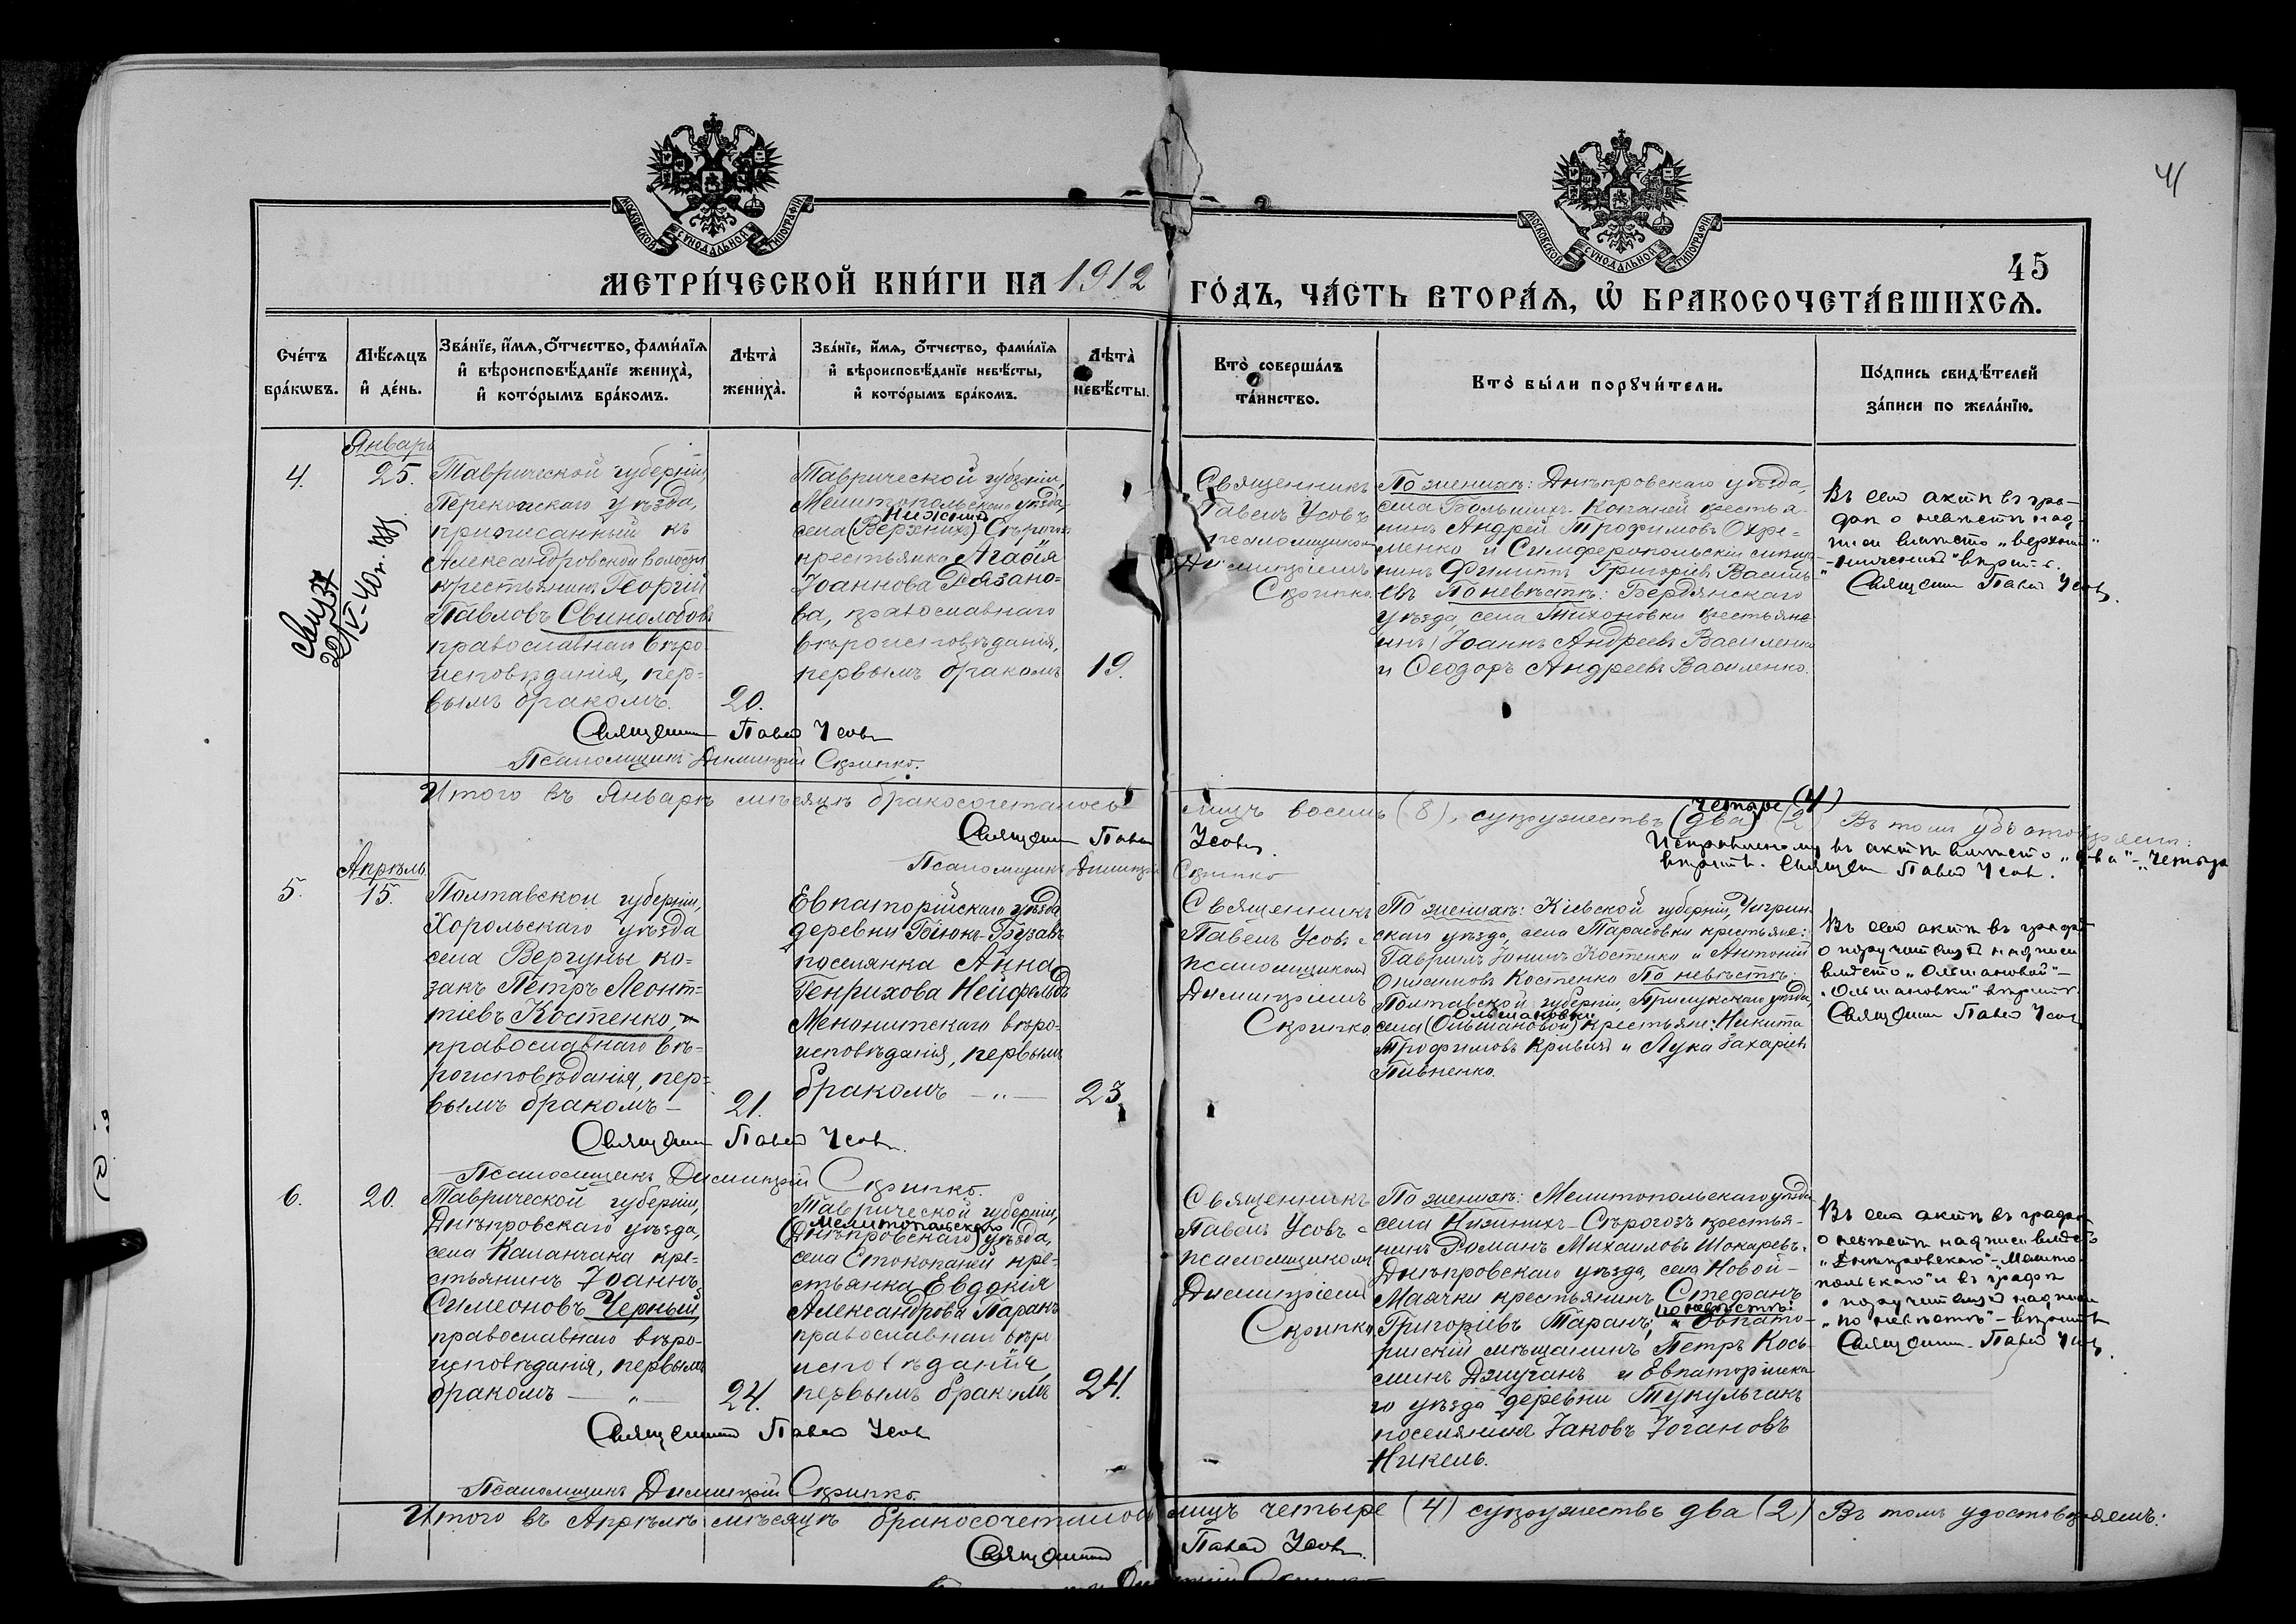 41
МОСКОВСКОЙ СУНОДАЛЬНОЙ ТИПОГРАФІИ
МОСКОВСКОЙ СУНОДАЛЬНОЙ ТИПОГРАФІИ
45
МЕТРИ́ЧЕСКОЙ КНИ́ГИ НА 1912 ГО́ДЪ, ЧА́СТЬ ВТОРА́Ѧ, Ѡ҆ БРАКОСОЧЕТА́ВШИХСѦ.
Сче́тъ
бра́кѡвъ.
Мѣ́сѧцъ
и҆ де́нь.
Зва́нїе, и҆́мѧ, ѻ҆́тчество, фами́лїѧ
и҆ вѣроисповѣ́данїе жениха̀,
и҆ кото́рымъ бра́комъ.
Лѣта̀
жениха̀.
Зва́нїе, и҆́мѧ, ѻ҆́тчество, фами́лїѧ
и҆ вѣроисповѣ́данїе невѣ́сты,
и҆ кото́рымъ бра́комъ.
Лѣта̀
невѣ́сты.
Кто̀ соверша́лъ
та́инство.
Кто̀ бы́ли порꙋчи́тели.
По́дпись свидѣ́телей
за́писи по жела́нїю.
Январь
4.
25.
Таврической губерніи,
Перекопскаго уѣзда,
приписанный къ
Александровской волости
крестьянинъ Георгій
Павловъ Свинолобовъ
православнаго вѣро-
исповѣданія, пер=
вымъ бракомъ.
20.
Таврической губерніи,
Мелитопольскаго уѣзда,
Нижнихъ
села (Верхнихъ) Сѣрогозъ
крестьянка Агафія
Іоаннова Рязано=
ва, православнаго
вѣроисповѣданія,
первымъ бракомъ
19.
Священникъ
Павелъ Усовъ съ
псаломщикомъ
Димитріемъ
Скрипко.
По женихѣ: Днѣпровскаго уѣзда,
села Большихъ-Копаней крестья-
нинъ Андрей Трофимовъ Охре=
менко и Симферопольскій мѣща-
нинъ Филиппъ Григорьевъ Василь-
евъ. По невѣстѣ: Бердянскаго
уѣзда, села Тихоновки крестьяне
Іоаннъ Андреевъ Василенко
и Ѳеодоръ Андреевъ Василенко.
Въ сей актѣ въ гра-
фѣ о невѣстѣ над-
писи вмѣсто „верхнихъ"
-„нижнихъ" вѣрить.
Священникъ Павелъ Усовъ.
Священникъ Павелъ Усовъ
Псаломщикъ Димитрій Скрипко.
Итого въ Январѣ мѣсяцѣ бракосочеталось лицъ восемь (8), супружествъ (два) (2) Въ томъ удостовѣряемъ:
четыре (4)
Священникъ Павелъ Усовъ.
Исправленному въ актѣ вмѣсто „два" - „четыре
вѣрить. Священникъ Павелъ Усовъ.
Псаломщикъ Димитрій Скрипко
Апрѣль
5.
15.
Полтавской губерніи,
Хорольскаго уѣзда
села Вергуны ко=
закъ Петръ Леонт=
тіевъ Костенко,
православнаго вѣ=
роисповѣданія, пер=
вымъ бракомъ —
21.
Евпаторійскаго уѣзда
деревни Біюкъ-Бузавъ
поселянка Анна
Генрихова Нейфельдъ
Менонитскаго вѣро-
исповѣданія, первымъ
бракомъ —"—
23.
Священникъ
Павелъ Усовъ съ
псаломщикомъ
Димитріемъ
Скрипко.
По женихѣ: Кіевской губерніи, Чигрин-
скаго уѣзда, села Тарасовки крестьяне:
Гавріилъ Іонинъ Костенко и Антоній
Онисимовъ Костенко По невѣстѣ:
Полтавской губерніи, Прилукскаго уѣзда,
Ольшановки
села (Ольшановой) крестьяне: Никита
Трофимовъ Кривий и Лука Захаріевъ
Пивненко.
Въ сей актѣ въ графѣ
о поручителяхъ надписи
вмѣсто „Ольшановой" -
„Ольшановки" вѣрить.
Священникъ Павелъ Усовъ
Священникъ Павелъ Усовъ.
Псаломщикъ Димитрій Скрипко.
6.
20.
Таврической губерніи,
Днѣпровскаго уѣзда,
села Каланчака кре-
стьянинъ Іоаннъ
Симеоновъ Черный,
православнаго вѣро-
исповѣданія, первымъ
бракомъ —"—
24.
Таврической губерніи,
Мелитопольскаго
(Днѣпровскаго) уѣзда,
села Стокопаней кре-
стьянка Евдокія
Александрова Таранъ
православнаго вѣро
исповѣданія,
первымъ бракомъ
24.
Священникъ
Павелъ Усовъ съ
псаломщикомъ
Димитріемъ
Скрипко.
По женихѣ: Мелитопольскаго уѣзда
села Нижнихъ-Сѣрогозъ крестья-
нинъ Романъ Михаиловъ Шокаревъ.
Днѣпровскаго уѣзда, села Новой-
Маячки крестьянинъ Стефанъ
по невѣстѣ:
Григоріевъ Таранъ, и Евпато-
рійскій мѣщанинъ Петръ Кось-
минъ Джуганъ и Евпаторійска-
го уѣзда деревни Тукульчакъ
поселянинъ Іаковъ Іогановъ
Никель.
Въ сей актѣ въ графѣ
о невѣстѣ надписи вмѣсто
„Днѣпровскаго"-„Мелито-
польскаго" и въ графѣ
о поручителяхъ надписи
„по невѣстѣ" - вѣрить
Священникъ Павелъ Усовъ.
Священникъ Павелъ Усовъ
Псаломщикъ Димитрій Скрипко.
Итого въ Апрѣлѣ мѣсяцѣ бракосочеталось лицъ четыре (4) супружествъ два (2) Въ томъ удостовѣряемъ:
Священникъ Павелъ Усовъ.